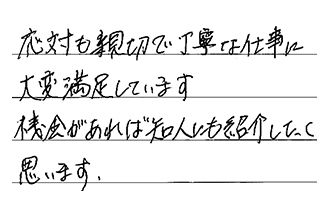 応対も親切で丁寧な仕事に
大変満足しています
機会があれば知人にも紹介したく
思います.